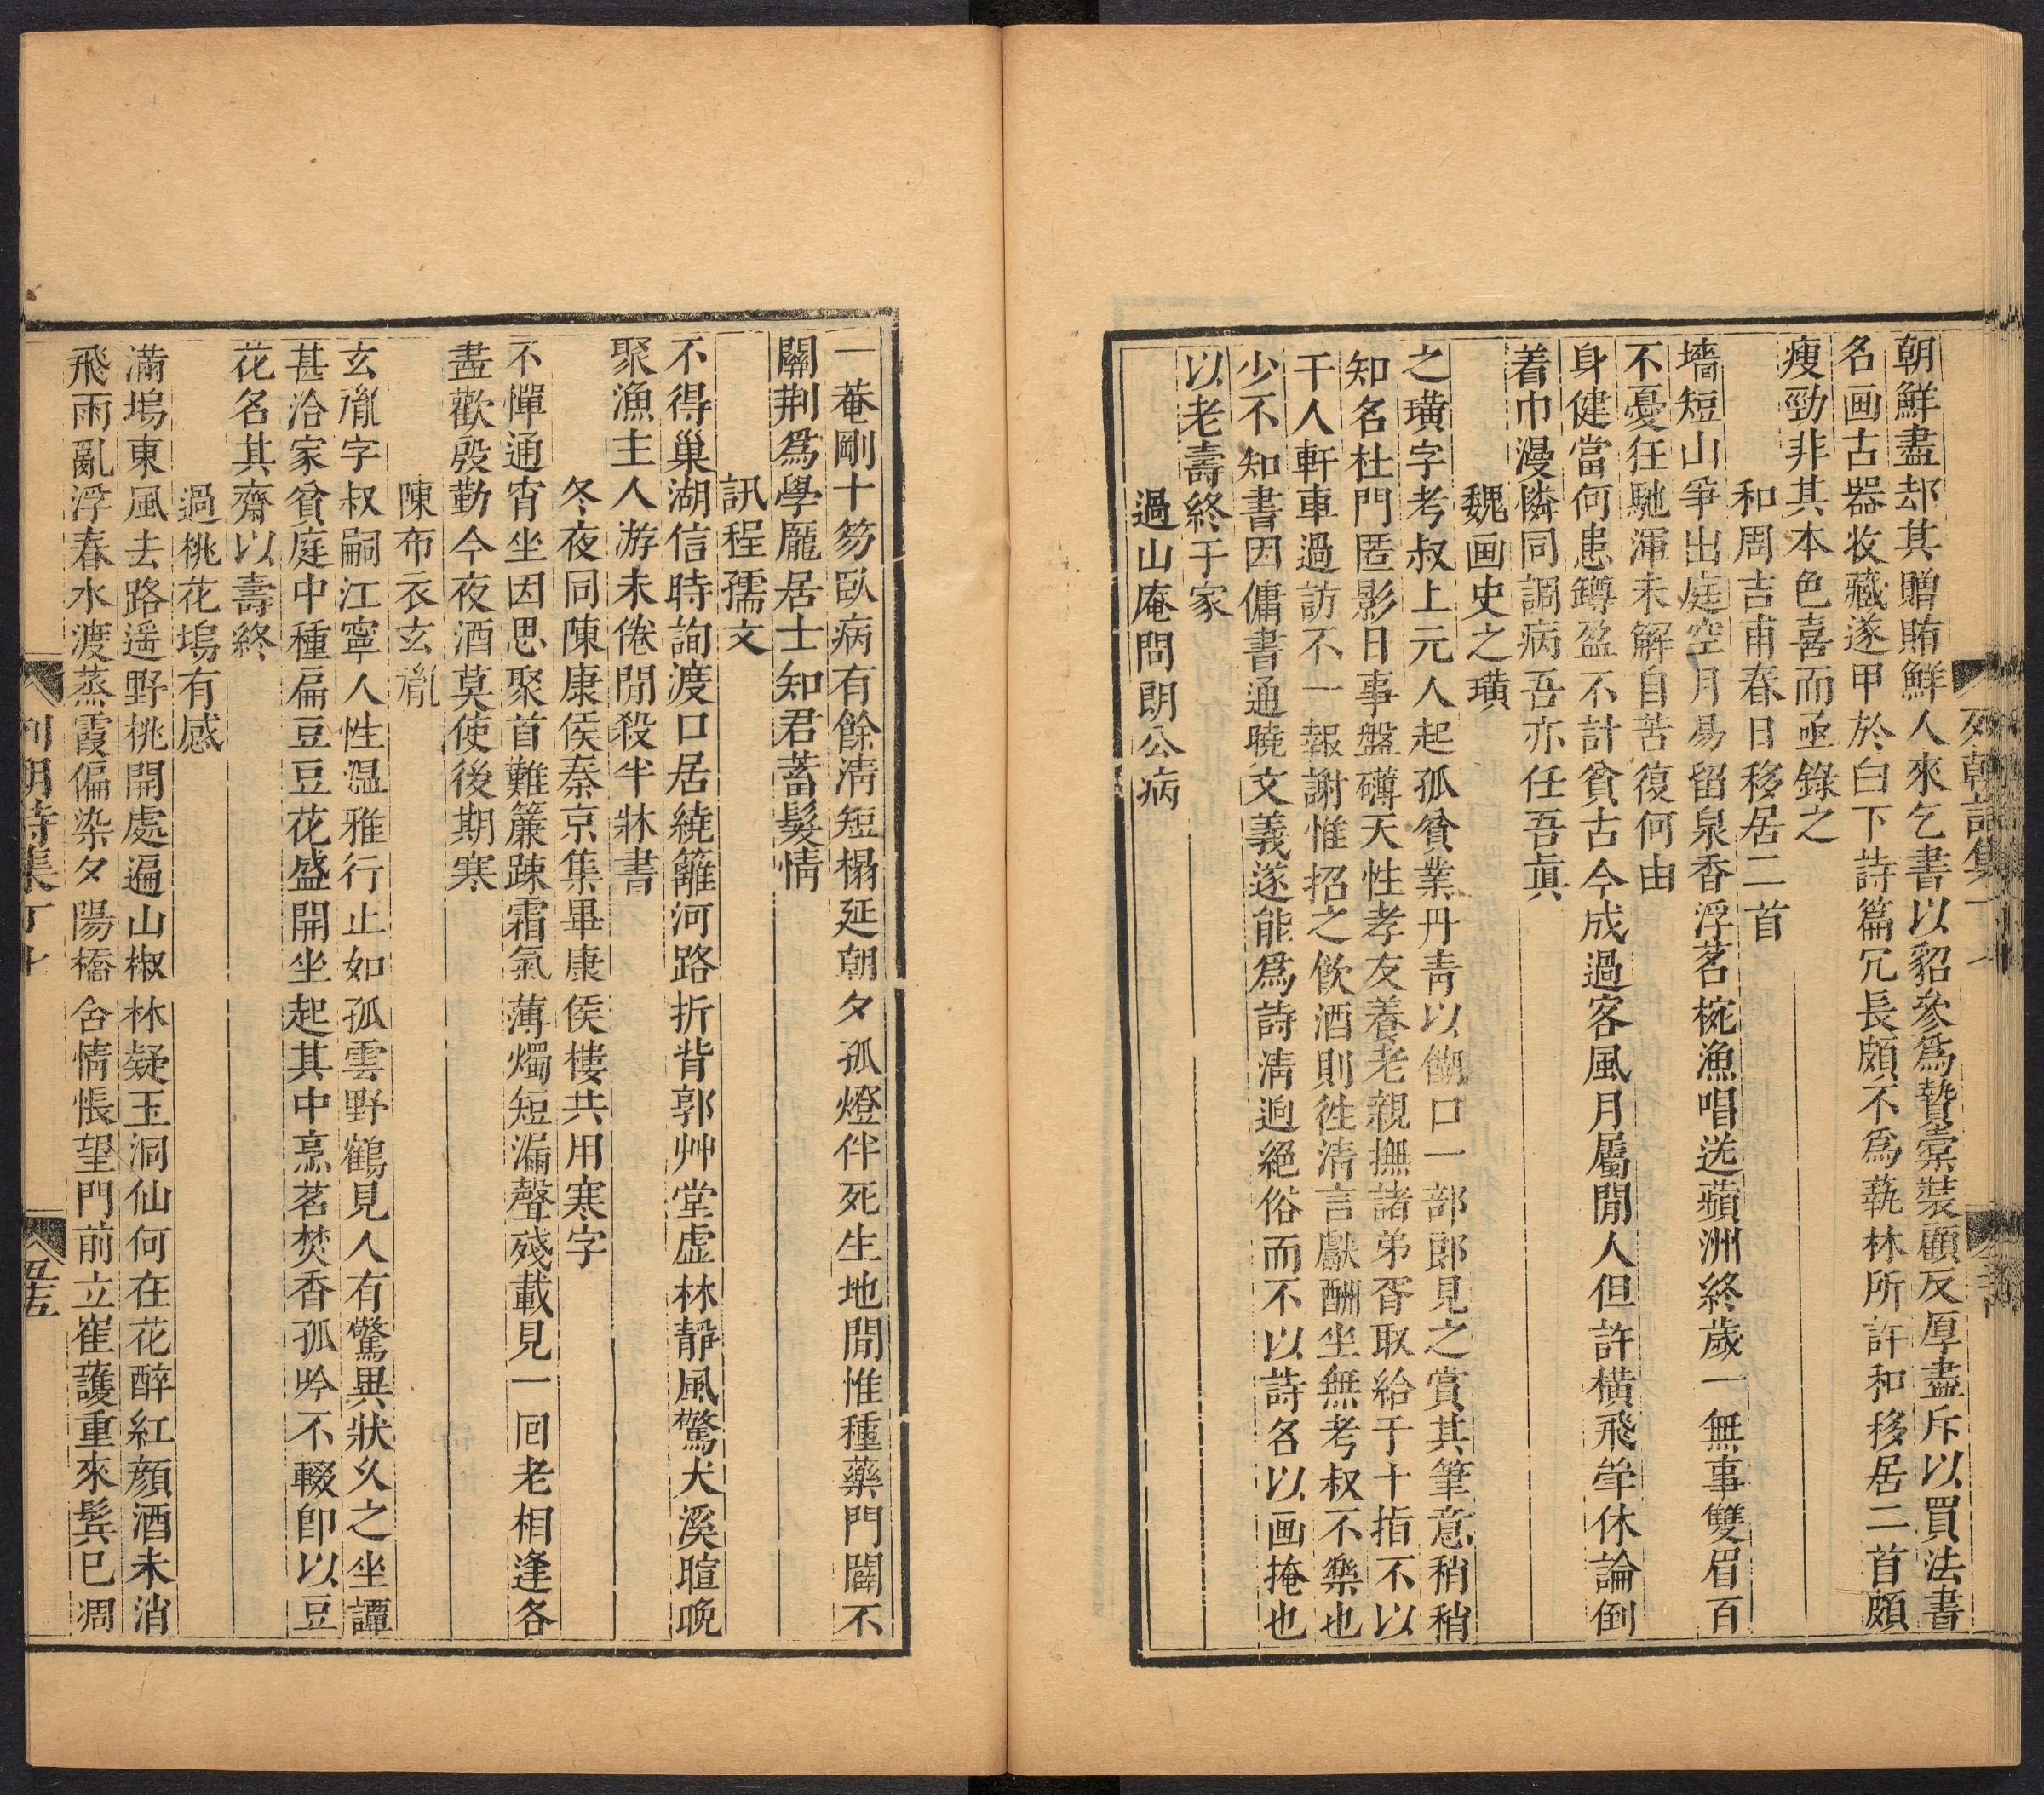 列朝詩集丁七
朝鮮盡却其贈賄鮮人來乞書以貂參為贄槖裝顧反厚盡斥以買法書
名画古器收藏遂甲於白下詩篇冗長頗不為蓺林所許和移居二首頗
瘦勁非其本色喜而亟錄之
和周吉甫春日移居二首
墻短山爭出庭空月易留泉香浮茗椀漁唱送蘋洲終歲一無事雙眉百
不憂任馳渾未解自苦復何由
身健當何患罇盈不計貧古今成過客風月屬閒人但許橫飛斝休論倒
着巾漫憐同調病吾亦任吾眞
魏画史之璜
之璜字考叔上元人起孤貧業丹青以餬口一部郎見之賞其筆意稍稍
知名杜門匿影日事盤礴天性孝友養老親撫諸弟胥取給于十指不以
干人軒車過訪不一報謝惟招之飲酒則徃清言獻酬坐無考叔不樂也
少不知書因傭書通曉文義遂能為詩清逈絕俗而不以詩名以画掩也
以老壽終于家
過山庵問朗公病
一菴剛十笏臥病有餘清短榻延朝夕孤燈伴死生地閒惟種藥門闢不
關荆爲學龐居士知君蓄髮情
訊程孺文
不得巢湖信時詢渡口居繞籬河路折背郭艸堂虛林靜風驚犬溪暄晚
聚漁主人游未倦閒殺半牀書
冬夜同陳康侯秦京集畢康侯樓共用寒字
不憚通宵坐因思聚首難簾疎霜氣薄燭短漏聲殘載見一囘老相逢各
盡歡殷勤今夜酒莫使後期寒
陳布衣玄胤
玄胤字叔嗣江寧人性溫雅行止如孤雲野鶴見人有驚異狀久之坐譚
甚洽家貧庭中種扁豆豆花盛開坐起其中烹茗焚香孤吟不輟卽以豆
花名其齋以壽終
過桃花塢有感
滿塢東風去路遥野桃開處遍山椒林疑玉洞仙何在花醉紅顔酒未消
飛雨亂浮春水渡蒸霞偏染夕陽橋含情悵望門前立崔護重來鬓已凋
列朝詩集丁七
五十五